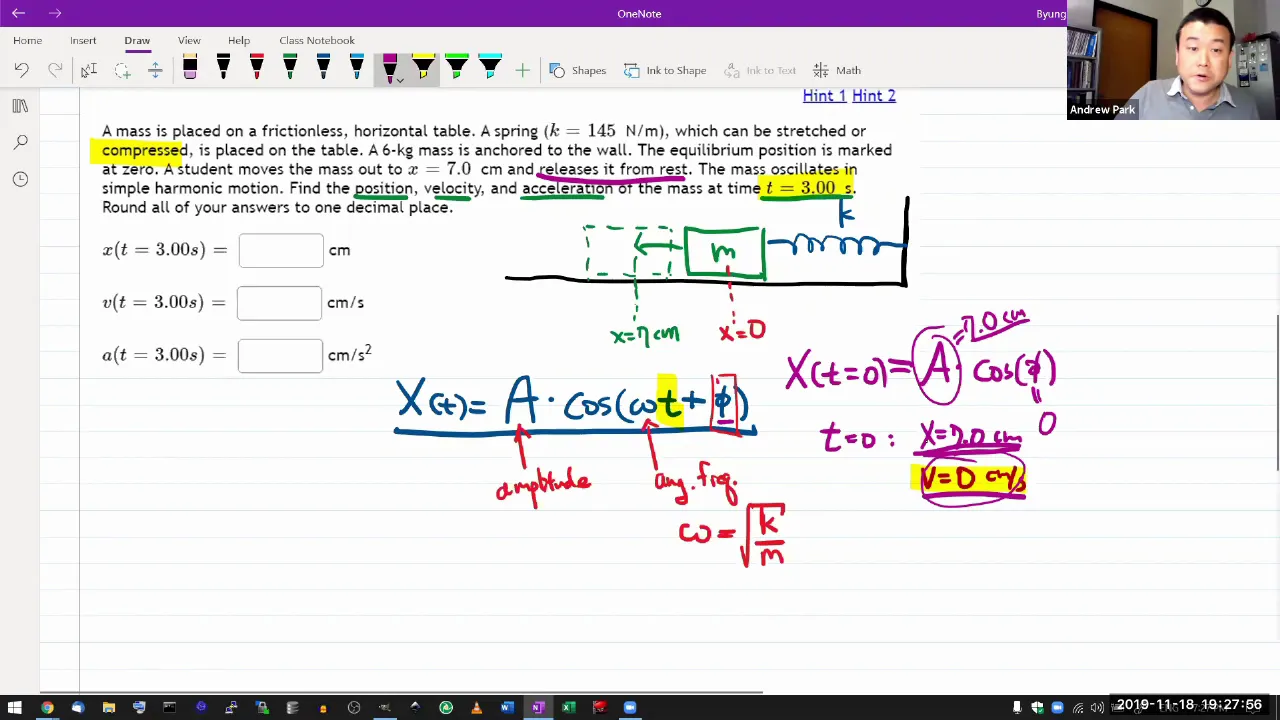 OneNote
Byung
Home Insert Draw View Help Class Notebook
Shapes Ink to Shape Ink to Text Math
Andrew Park
Hint 1 Hint 2
A mass is placed on a frictionless, horizontal table. A spring (k = 145 N/m), which can be stretched or
compressed, is placed on the table. A 6-kg mass is anchored to the wall. The equilibrium position is marked
at zero. A student moves the mass out to x = 7.0 cm and releases it from rest. The mass oscillates in
simple harmonic motion. Find the position, velocity, and acceleration of the mass at time t = 3.00 s.
Round all of your answers to one decimal place.
k
m
x=7cm x=0
x(t = 3.00s) = cm
v(t = 3.00s) = cm/s
a(t = 3.00s) = cm/s²
X(t) = A · cos(ωt + ϕ)
amplitude
ang. freq.
ω = √k/m
X(t=0) = A · cos(ϕ)
= 7.0 cm
= 0
t=0 : X=7.0 cm
V=0 cm/s
2019-11-18 19:27:56